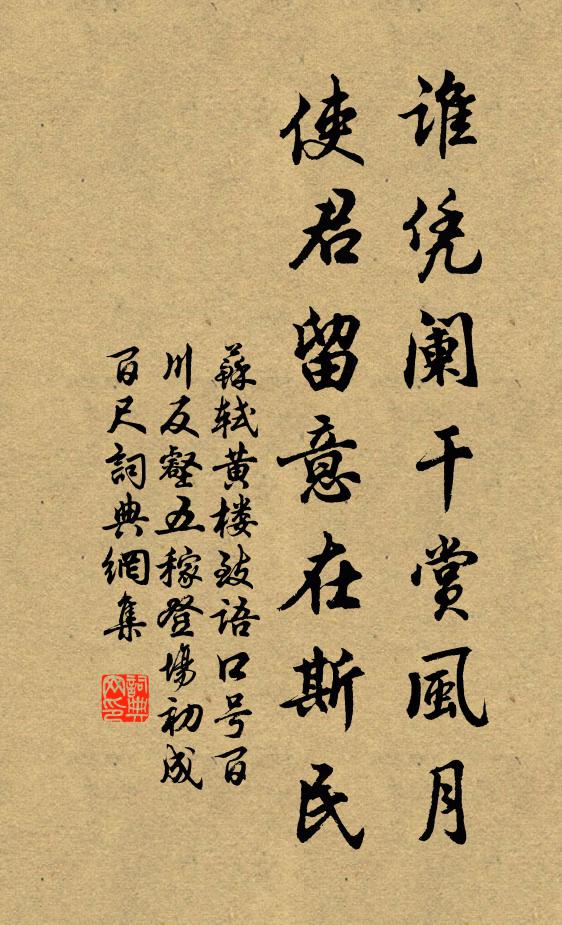 谁凭阑干赏風月
使君留意在斯民
蘇轼黄楼致语口号百
川反壑五稼登場初成
百尺詞典網集
詞典